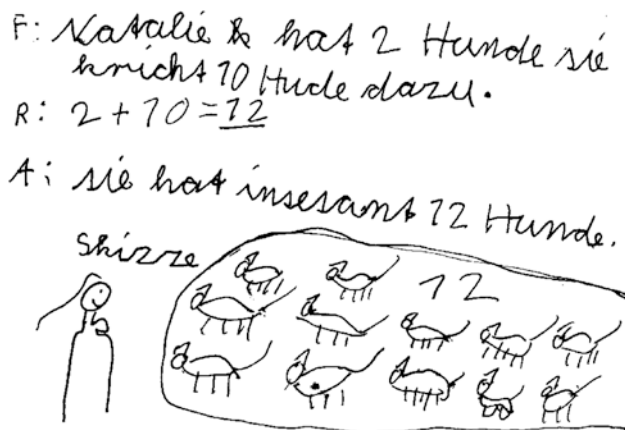 F: Natalie hat 2 Hunde sie
kricht 10 Hude dazu.
R: 2 + 10 = 12
A: sie hat insesamt 12 Hunde.
Skizze
12